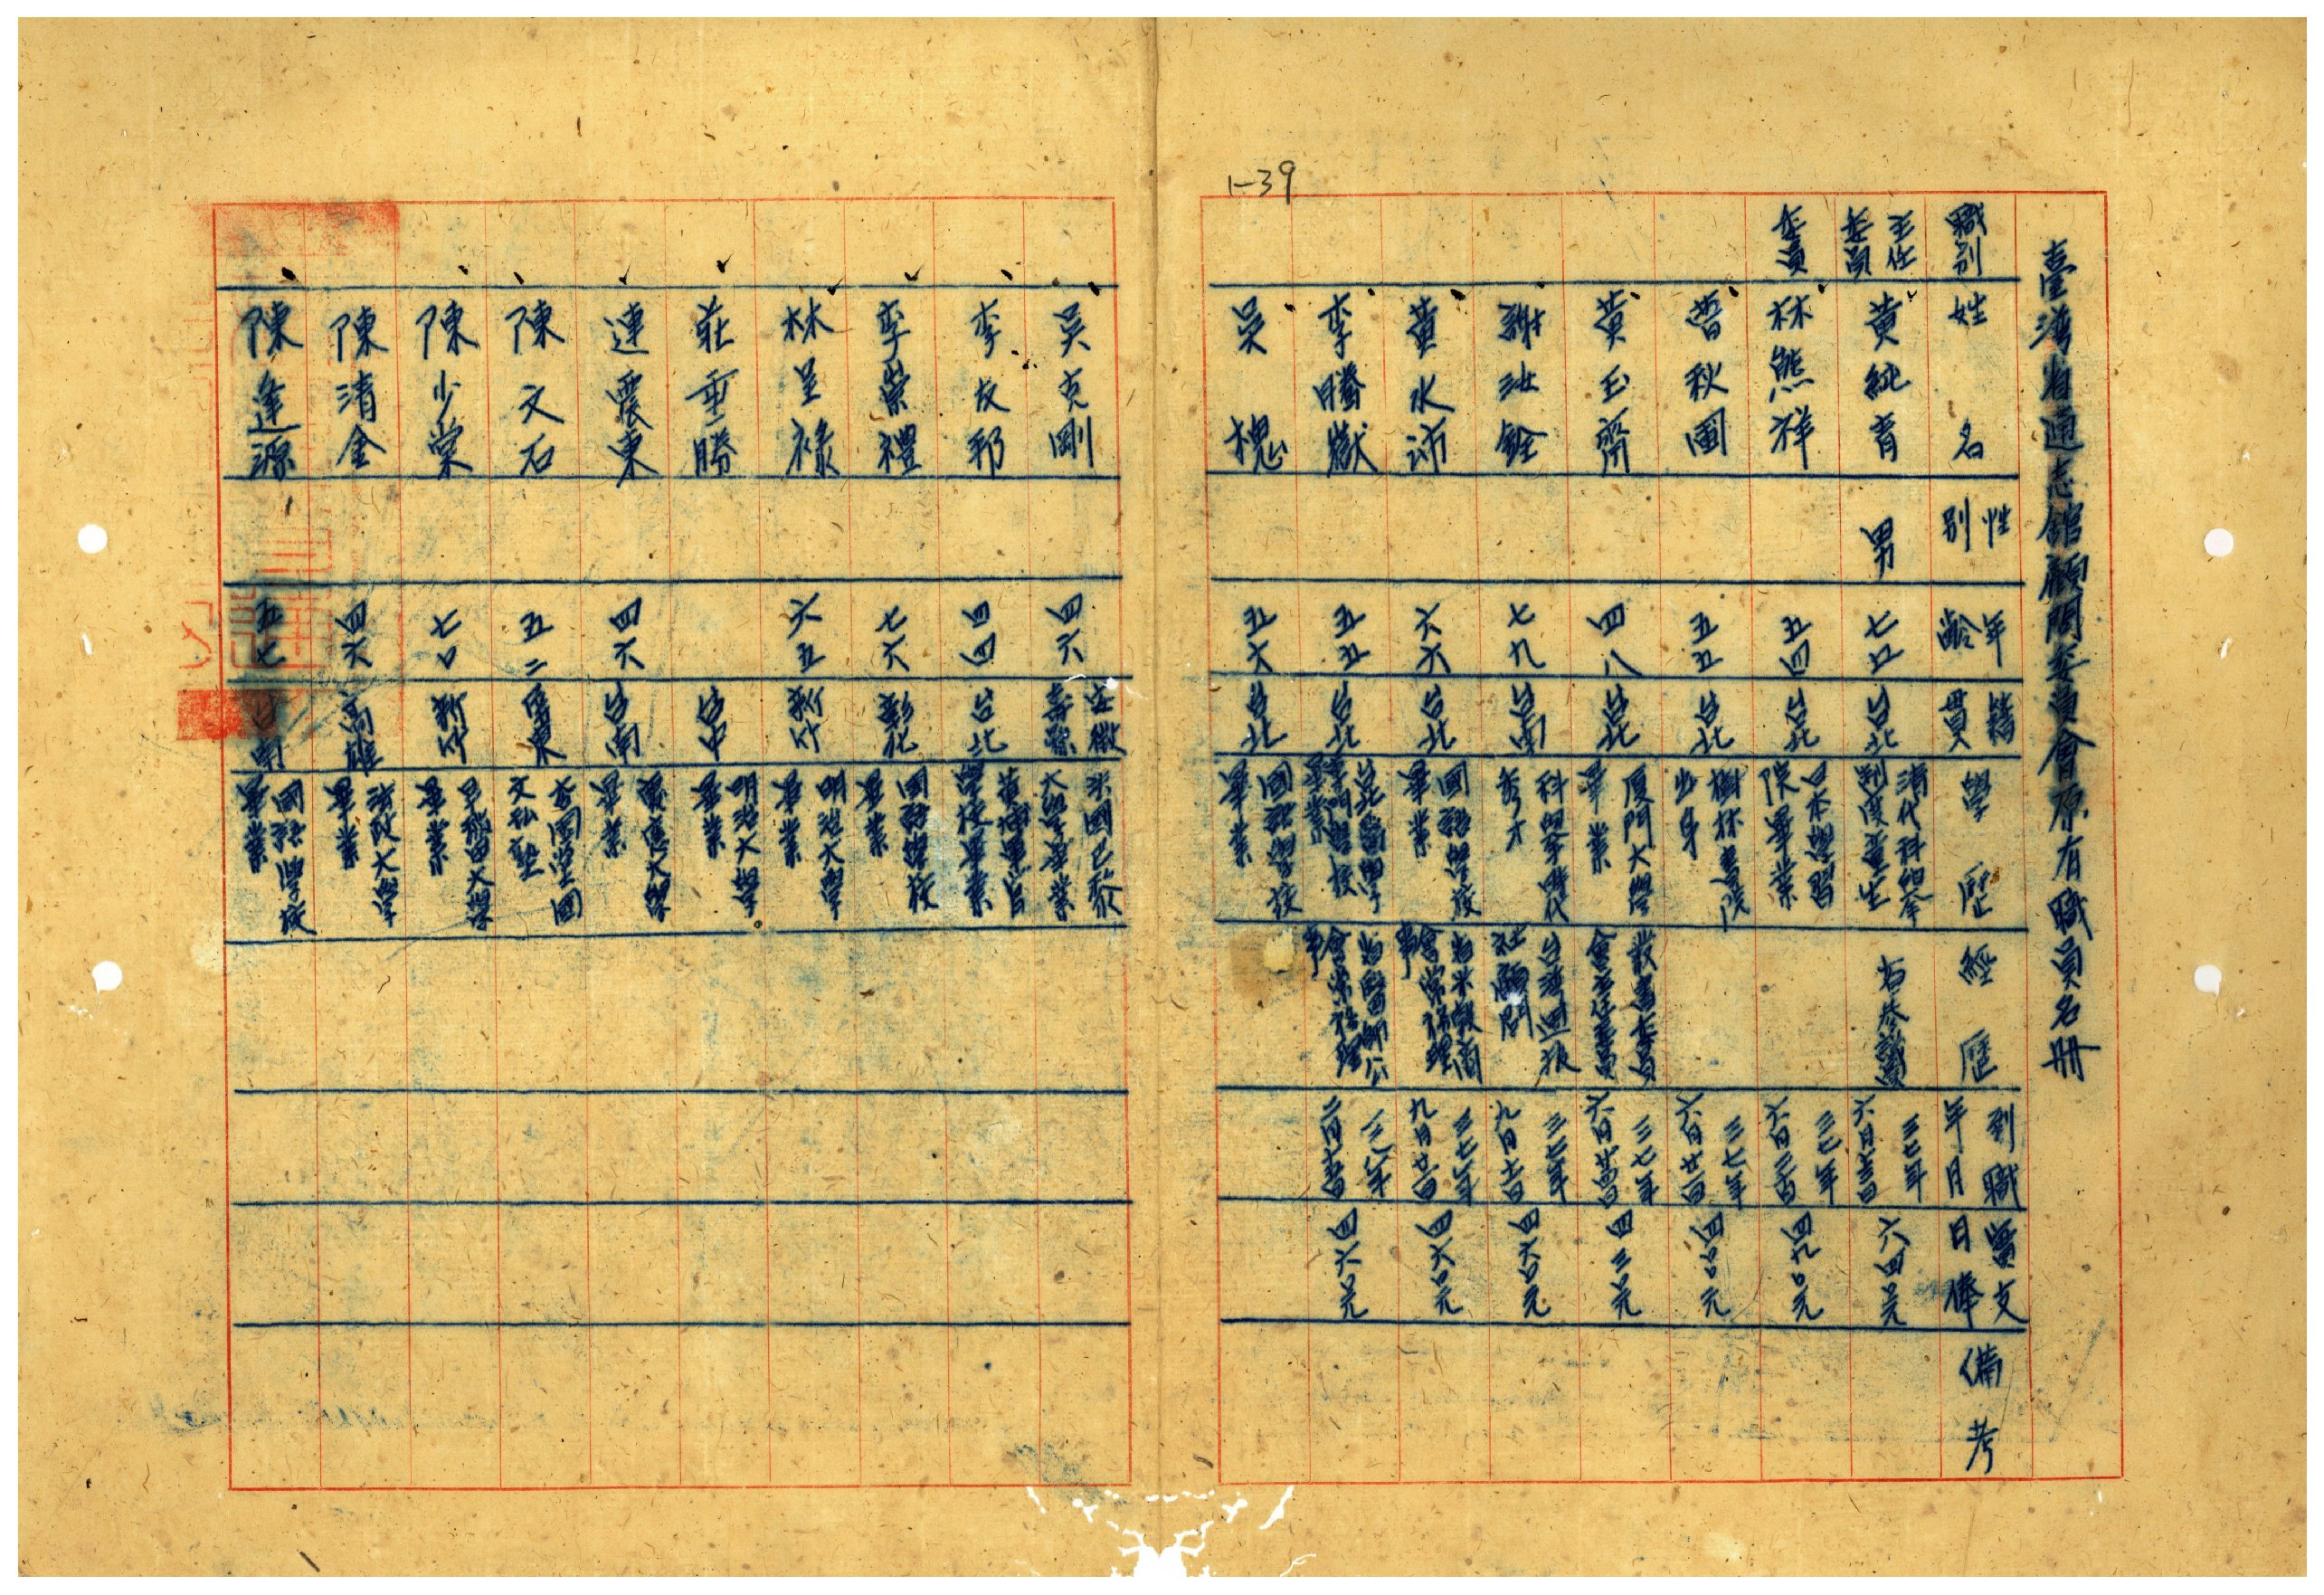 1-39
臺灣省通志館顧問委員會原有職員名冊
職別 姓名 性別 年齡 籍貫 學歷 經歷 到職年月 實支日俸 備考
主任委員 黃純青 男 七五 台北 清代科舉制度童生 省參議員 三七年六月 六四〇元
委員 林熊祥 五四 台北 日本學習院畢業 三七年六月 四九〇元
曹秋圃 五五 台北 樹林書院出身 三七年六月 四〇〇元
黃玉齋 四八 台北 廈門大學畢業 叢書委員會主任委員 三七年六月 四三〇元
謝汝銓 七九 台南 科舉時代秀才 台灣 社顧問 三七年九月 四六〇元
黃水沛 六六 台北 國語學校畢業 省米穀商會常務理事 三七年九月 四六〇元
李騰嶽 五五 台北 台北醫學專門學校畢業 省醫師公會常務理事 三八年二月 四六〇元
吳槐 五六 台北 國語學校畢業
吳克剛 四六 安徽壽縣 法國巴黎大學畢業
李友邦 四四 台北 黃埔軍官學校畢業
李崇禮 七六 彰化 國語學校畢業
林呈祿 六五 新竹 明治大學畢業
莊垂勝 台中 明治大學畢業
連震東 四六 台南 慶應大學畢業
陳文石 五二 屏東 文私塾
陳少棠 七〇 新竹 早稻田大學畢業
陳清金 四六 高雄 法政大學畢業
陳逢源 五七 台南 國語學校畢業